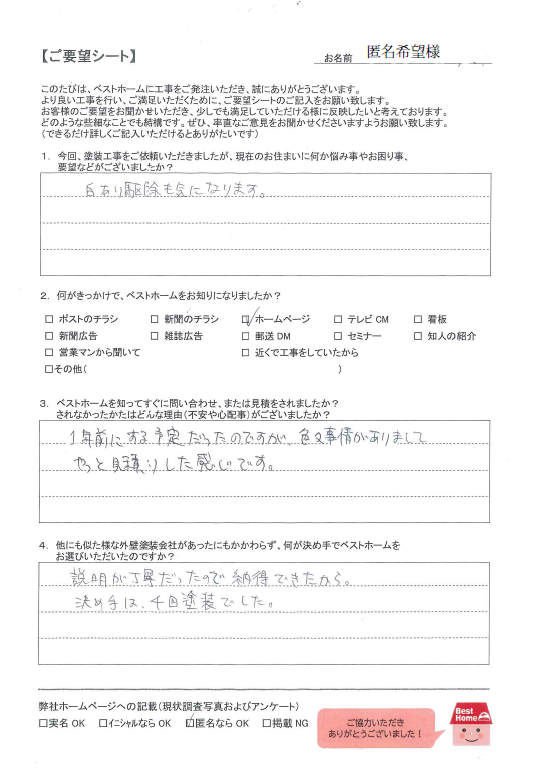 【ご要望シート】
お名前 匿名希望様
このたびは、ベストホームに工事をご発注いただき、誠にありがとうございます。
より良い工事を行い、ご満足いただくために、ご要望シートのご記入をお願い致します。
お客様のご要望をお聞かせいただき、少しでも満足していただける様に反映したいと考えております。
どのような些細なことでも結構です。ぜひ、率直なご意見をお聞かせくださいますようお願い致します。
（できるだけ詳しくご記入いただけるとありがたいです）
1. 今回、塗装工事をご依頼いただきましたが、現在のお住まいに何か悩み事やお困り事、
要望などがございましたか？
白あり駆除も気になります。
2. 何がきっかけで、ベストホームをお知りになりましたか？
□ ポストのチラシ □ 新聞のチラシ ☑ ホームページ □ テレビCM □ 看板
□ 新聞広告 □ 雑誌広告 □ 郵送DM □ セミナー □ 知人の紹介
□ 営業マンから聞いて □ 近くで工事をしていたから
□その他（ ）
3. ベストホームを知ってすぐに問い合わせ、または見積をされましたか？
されなかったかたはどんな理由（不安や心配事）がございましたか？
1年前にする予定だったのですが、色々事情がありまして
やっと見積りした感じです。
4. 他にも似た様な外壁塗装会社があったにもかかわらず、何が決め手でベストホームを
お選びいただいたのですか？
説明が丁寧だったので納得できたから。
決め手は、4回塗装でした。
弊社ホームページへの記載（現状調査写真およびアンケート）
□実名OK □イニシャルならOK ☑匿名ならOK □掲載NG
ご協力いただき
ありがとうございました！
Best
Home